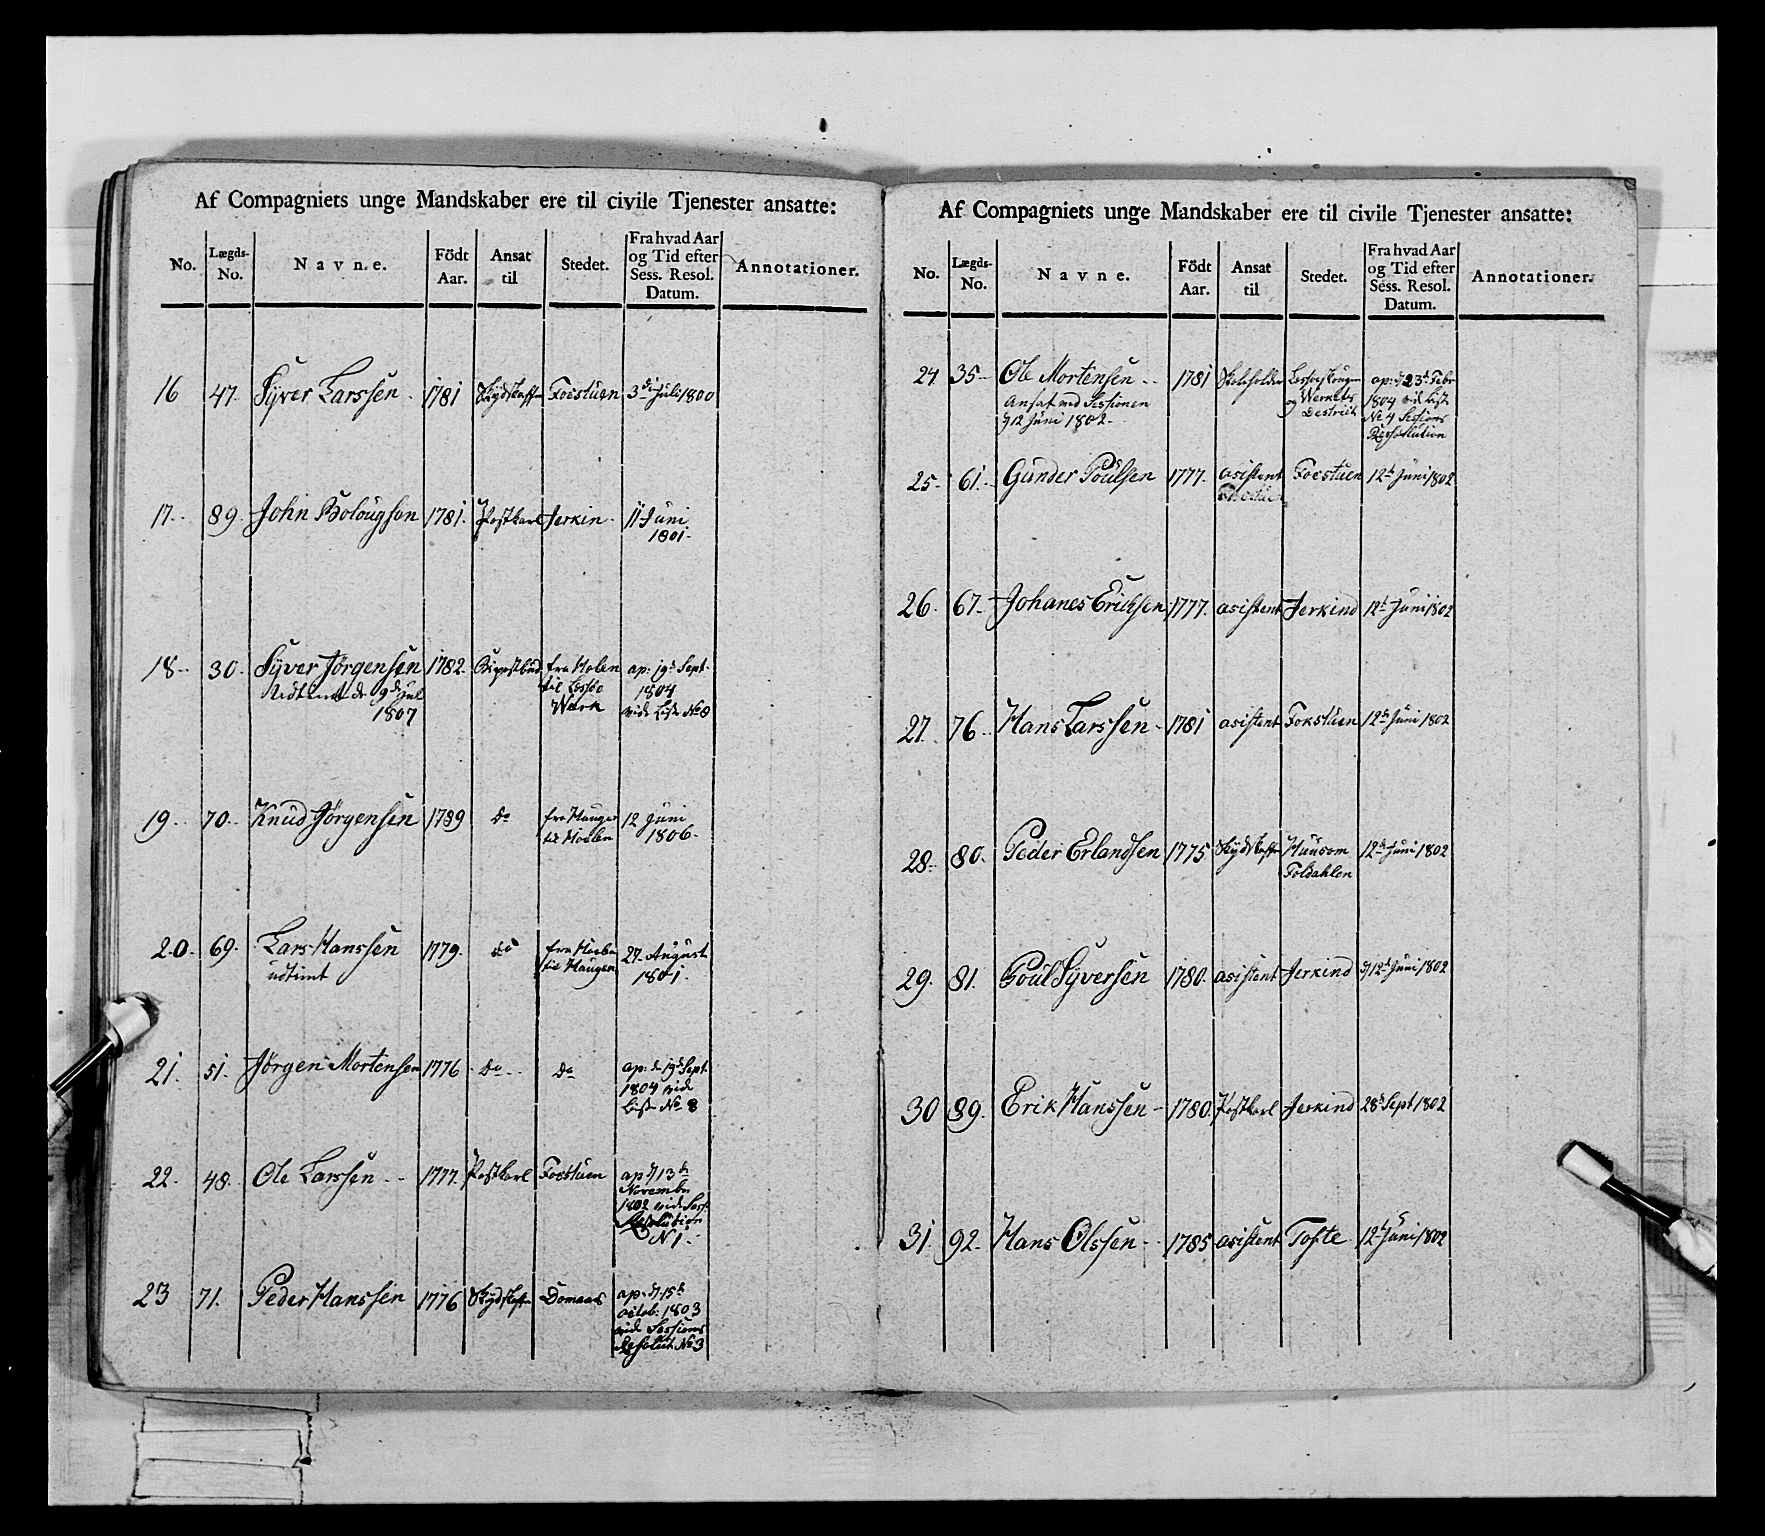 Af Compagniets unge Mandskaber ere til civile Tjenester ansatte:
No. Lægds-No. Navne. Födt Aar. Ansat til Stedet. Fra hvad Aar og Tid efter Sess. Resol. Datum. Annotationer.
16 47. Syver Larssen 1781 Skydskaffer Focstuen 3de Juli 1800
17. 89. John Bolougson 1781. Postkarl Jerkin 11 Juni
1801.
18 30. Syver Jørgensen 1782. fra Holen ap: 19d Sept
Udtient d. 9d Jul til Lessøe 1804
1807 Værk vide List No 8
19. 70. Knud Jørgensen 1789 do fra Hauge 12 Juni
til Hoelen 1806.
20. 69. Lars Hanssen 1779. do fra Hoelen 27. August
udtient til Haugen 1801.
21. 51. Jørgen Mortensen 1776 do do ap: d. 19d Sept
1804 vide
List No 8
22. 48. Ole Larssen 1777. Postkarl Focstuen ap d 13de
November
1802 vide Sess:
Resolution
N 1.
23 71. Peder Hanssen 1776 Skydskaffer Domaas ap. d. 15de
octob: 1803
vide Sessions
Resolut: No 3
Af Compagniets unge Mandskaber ere til civile Tjenester ansatte:
No. Lægds-No. Navne. Födt Aar. Ansat til Stedet. Fra hvad Aar og Tid efter Sess. Resol. Datum. Annotationer.
24. 35 Ole Mortensen 1781 Skoleholder Lessøeskougen ap: d 23de Febr
Ansat ved Sessionen og Værkets 1804 vid List
d 12 Juni 1802. Destrict No 4 Sessions
Resolution
25. 61. Gunder Poulsen 1777. asistent Focstuen 12te Juni 1802
26. 67. Johanes Ericksen 1777. asistent Jerkind 12te Juni 1802
27. 76. Hans Larssen 1781 asistent Fokstuen 12te Juni 1802
28. 80. Peder Erlandsen 1775 Skydskaffer Huusom 12te Juni 1802
Foldahlen
29. 81. Poul Syversen 1780. asistent Jerkind d 12te Juni 1802
30 89. Erik Hanssen 1780. Postkarl Jerkind 28d Sept 1802
31. 92. Hans Olssen 1785 asistent Tofte 12te Juni 1802